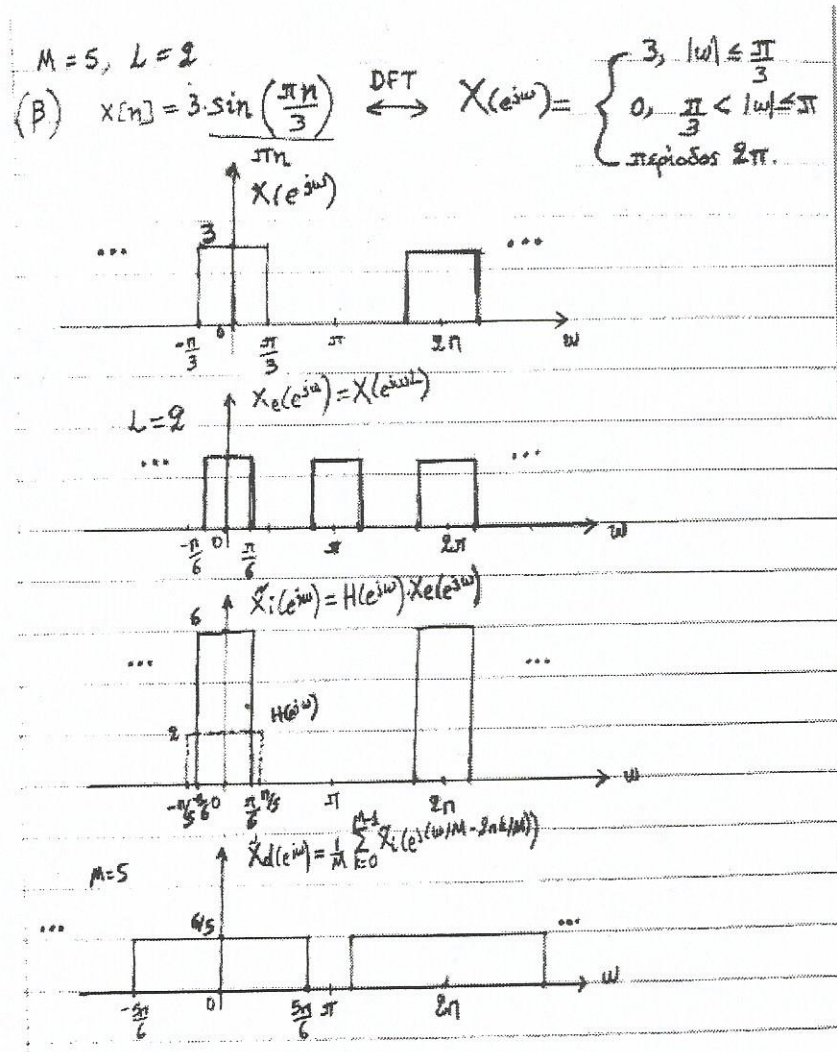 M = 5, L = 2
(β) x[n] = 3·sin(πn/3)/πn DFT ⟷ X(e^{jω}) = { 3, |ω| ≤ π/3
0, π/3 < |ω| ≤ π
περίοδος 2π.
X(e^{jω})
... 3 ...
-π/3 0 π/3 π 2π ω
L = 2 Xe(e^{jω}) = X(e^{jωL})
... ...
-π/6 0 π/6 π 2π ω
Xi(e^{jω}) = H(e^{jω})·Xe(e^{jω})
6
... ...
2 H(e^{jω})
-π/5 -π/6 0 π/6 π/5 π 2π ω
M=5 Xd(e^{jω}) = 1/M Σ_{k=0}^{M-1} Xi(e^{j(ω/M - 2πk/M)})
... 6/5 ...
-5π/6 0 5π/6 π 2π ω